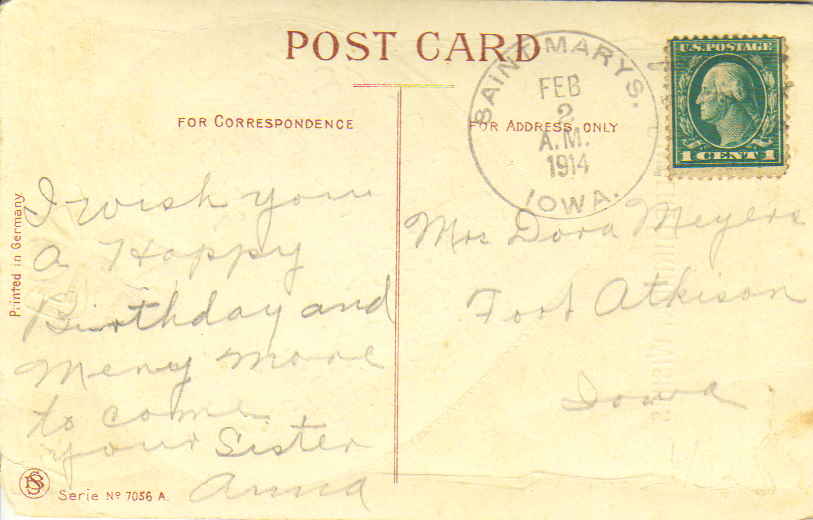 POST CARD
SAINT MARYS.
FEB
2
A.M.
1914
IOWA.
U.S. POSTAGE
1 CENT 1
FOR CORRESPONDENCE
FOR ADDRESS ONLY
Printed in Germany
I wish you
a Happy
Birthday and
Meny more
to come
your Sister
Anna
Mrs Dora Meyers
Fort Atkison
Iowa
Serie Nº 7056 A.